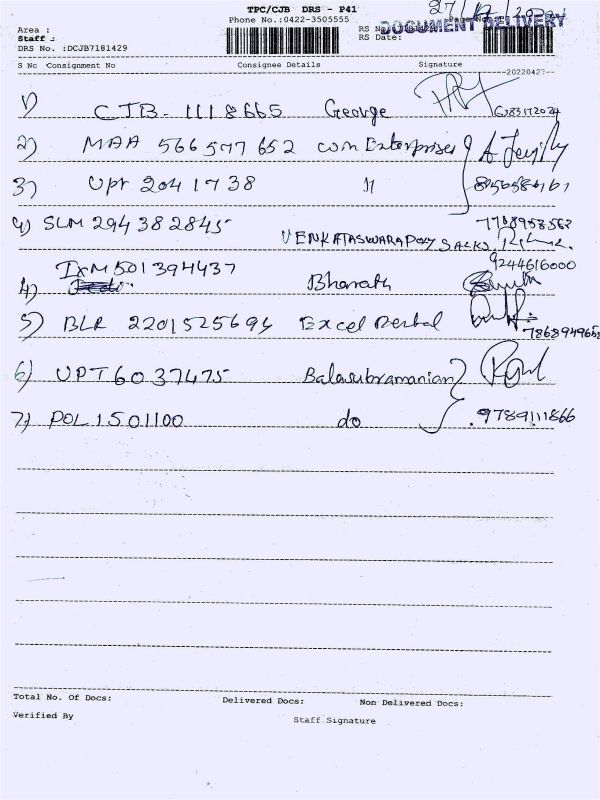 TPC/CJB DRS - P41
Phone No.:0422-3505555
DOCUMENT DELIVERY
Area :
Staff :
DRS No. :DCJB7181429
RS Date:
S No Consignment No Consignee Details Signature
20220427
1) CJB - 1118665 George
2) MAA 566577652 com Enterprises
3) UPT 2041738 11 8956584161
4) SLM 294382845 VENKATASWARA POLY SACKS 7708958568
4) IXM501394437 Bharath 9244616000
5) BLR 2201525694 Excel Dental 7868949668
6) UPT6037475 Balasubramanian
7) POL1501100 do 9789111866
Total No. Of Docs: Delivered Docs: Non Delivered Docs:
Verified By Staff Signature